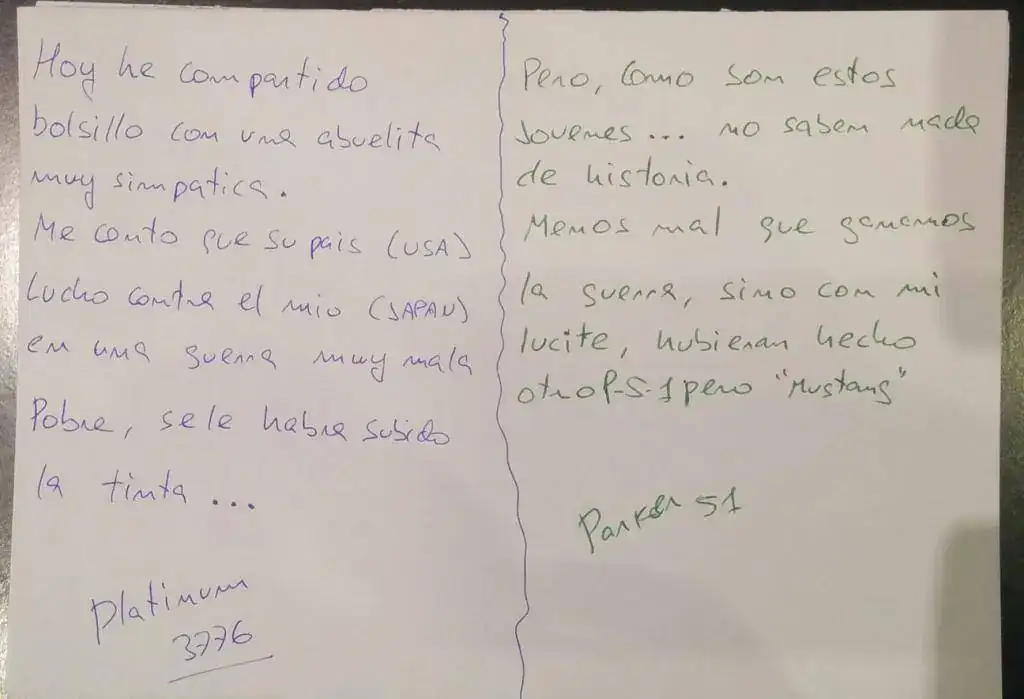 Hoy he compartido
bolsillo con una abuelita
muy simpatica.
Me conto que su pais (USA)
Lucho contra el mio (JAPAN)
en una guerra muy mala
Pobre, se le habra subido
la tinta ...
Platinum
3776
Pero, como son estos
Jovenes ... no saben nada
de historia.
Menos mal que ganamos
la guerra, sino con mi
lucite, hubieran hecho
otro P-51 pero "Mustang"
Parker 51